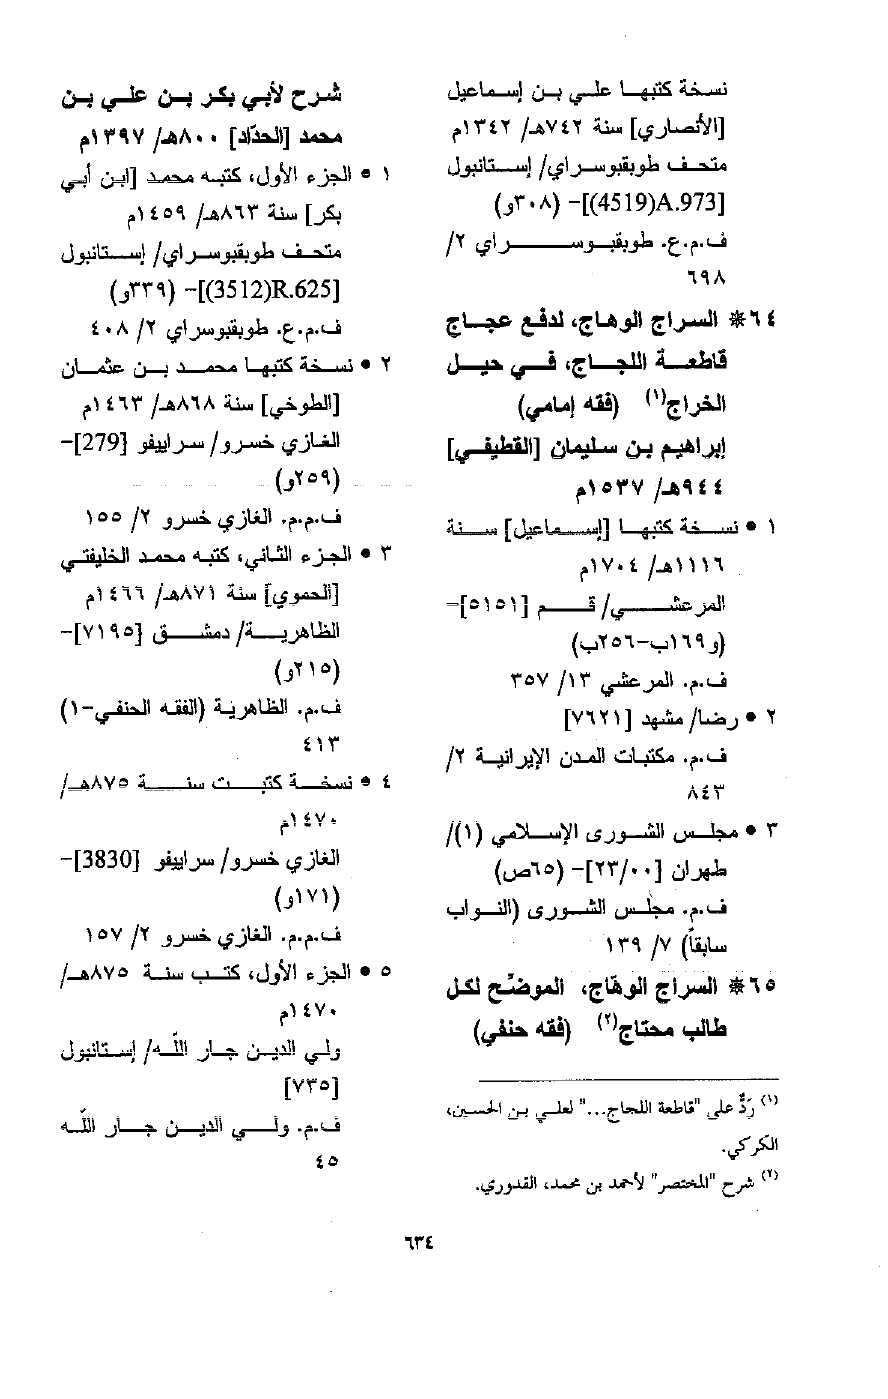 نسخة كتبها علي بن إسماعيل
[الأنصاري] سنة ٧٤٢هـ/ ١٣٤٢م
متحف طوبقبوسراي/ إستانبول
[4519)A.973)]– (٣٠٨و)
ف.م.ع. طوبقبوسراي ٢/
٦٩٨
٦٤* السراج الوهاج، لدفع عجاج
قاطعة اللجاج، في حيل
الخراج(١) (فقه إمامي)
إبراهيم بن سليمان [القطيفي]
٩٤٤هـ/ ١٥٣٧م
١ • نسخة كتبها [إسماعيل] سنة
١١١٦هـ/ ١٧٠٤م
المرعشي/ قم [٥١٥١]–
(و١٦٩ب–٢٥٦ب)
ف.م. المرعشي ١٣/ ٣٥٧
٢ • رضا/ مشهد [٧٦٢١]
ف.م. مكتبات المدن الإيرانية ٢/
٨٤٣
٣ • مجلس الشورى الإسلامي (١)/
طهران [٢٣/٠٠]– (٦٥ص)
ف.م. مجلس الشورى (النواب
سابقاً) ٧/ ١٣٩
٦٥* السراج الوهّاج، الموضّح لكل
طالب محتاج(٢) (فقه حنفي)
(١) رَدٌّ على "قاطعة اللجاج..." لعلي بن الحسين،
الكركي.
(٢) شرح "المختصر" لأحمد بن محمد، القدوري.
شرح لأبي بكر بن علي بن
محمد [الحدّاد] ٨٠٠هـ/ ١٣٩٧م
١ • الجزء الأول، كتبه محمد [ابن أبي
بكر] سنة ٨٦٣هـ/ ١٤٥٩م
متحف طوبقبوسراي/ إستانبول
[3512)R.625)]– (٣٣٩و)
ف.م.ع. طوبقبوسراي ٢/ ٤٠٨
٢ • نسخة كتبها محمد بن عثمان
[الطوخي] سنة ٨٦٨هـ/ ١٤٦٣م
الغازي خسرو/ سراييفو [279]–
(٢٥٩و)
ف.م.م. الغازي خسرو ٢/ ١٥٥
٣ • الجزء الثاني، كتبه محمد الخليفتي
[الحموي] سنة ٨٧١هـ/ ١٤٦٦م
الظاهرية/ دمشق [٧١٩٥]–
(٢١٥و)
ف.م. الظاهرية (الفقه الحنفي–١)
٤١٣
٤ • نسخة كتبت سنة ٨٧٥هـ/
١٤٧٠م
الغازي خسرو/ سراييفو [3830]–
(١٧١و)
ف.م.م. الغازي خسرو ٢/ ١٥٧
٥ • الجزء الأول، كتب سنة ٨٧٥هـ/
١٤٧٠م
ولي الدين جار اللّه/ إستانبول
[٧٣٥]
ف.م. ولي الدين جار اللّه
٤٥
٦٣٤